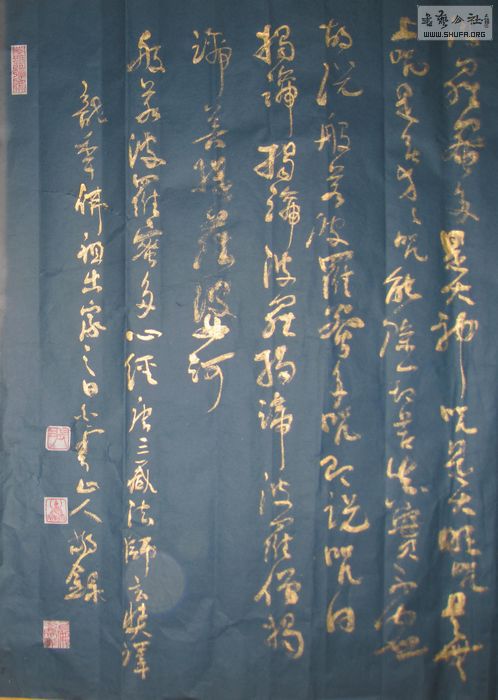 書藝公社
WWW.SHUFA.ORG
波羅蜜多是大神咒是大明咒是無
上咒是無等々咒能除一切苦真實不虛
故說般若波羅蜜多咒即說咒曰
揭諦揭諦波羅揭諦波羅僧揭
諦菩提薩婆訶
般若波羅蜜多心經唐三藏法師玄奘譯
龍年佛祖出家之日雲山人敬錄